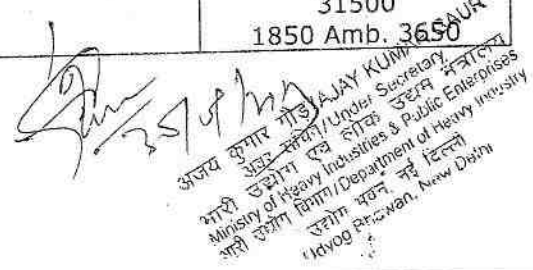 31500
1850 Amb. 3650
अजय कुमार गौड़/AJAY KUMAR GAUR
अवर सचिव/Under Secretary
भारी उद्योग एवं लोक उद्यम मंत्रालय
Ministry of Heavy Industries & Public Enterprises
भारी उद्योग विभाग/Department of Heavy Industry
उद्योग भवन, नई दिल्ली
Udyog Bhawan, New Delhi